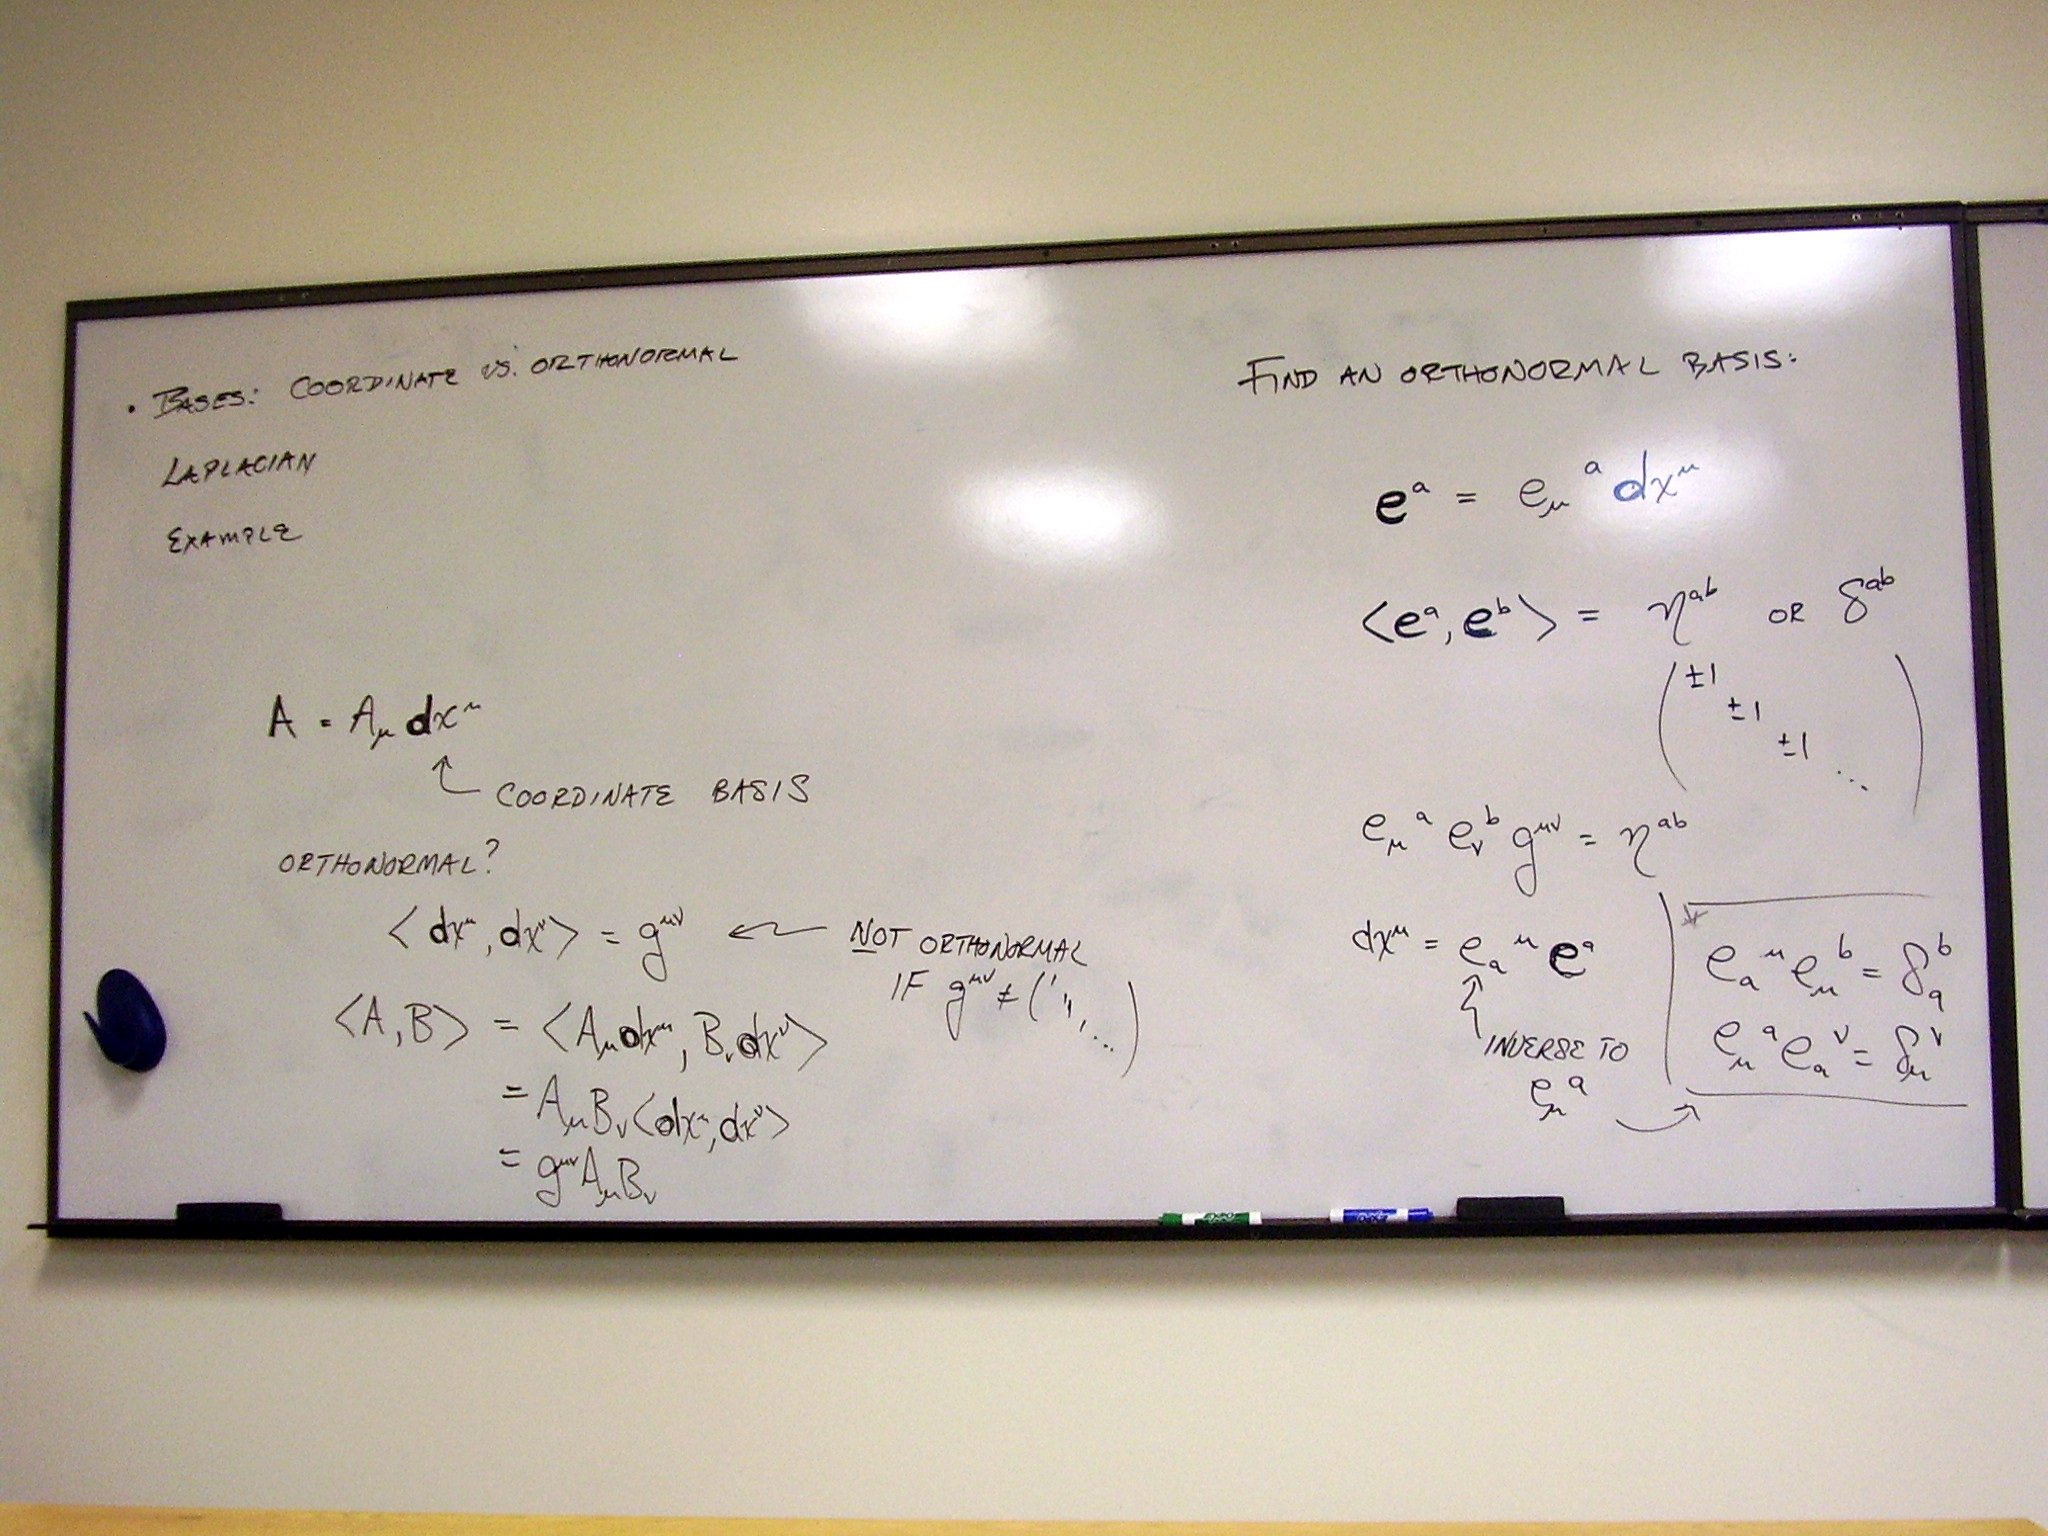 • BASES: COORDINATE VS. ORTHONORMAL
LAPLACIAN
EXAMPLE
A = A_μ dx^μ
COORDINATE BASIS
ORTHONORMAL?
⟨dx^μ, dx^ν⟩ = g^{μν} ← NOT ORTHONORMAL
IF g^{μν} ≠ (1 1 1 ...)
⟨A, B⟩ = ⟨A_μ dx^μ, B_ν dx^ν⟩
= A_μ B_ν ⟨dx^μ, dx^ν⟩
= g^{μν} A_μ B_ν
FIND AN ORTHONORMAL BASIS:
e^a = e_μ^a dx^μ
⟨e^a, e^b⟩ = η^{ab} OR δ^{ab}
(±1 ±1 ±1 ...)
e_μ^a e_ν^b g^{μν} = η^{ab}
dx^μ = e_a^μ e^a
INVERSE TO
e_μ^a
* e_a^μ e_μ^b = δ_a^b
e_μ^a e_a^ν = δ_μ^ν